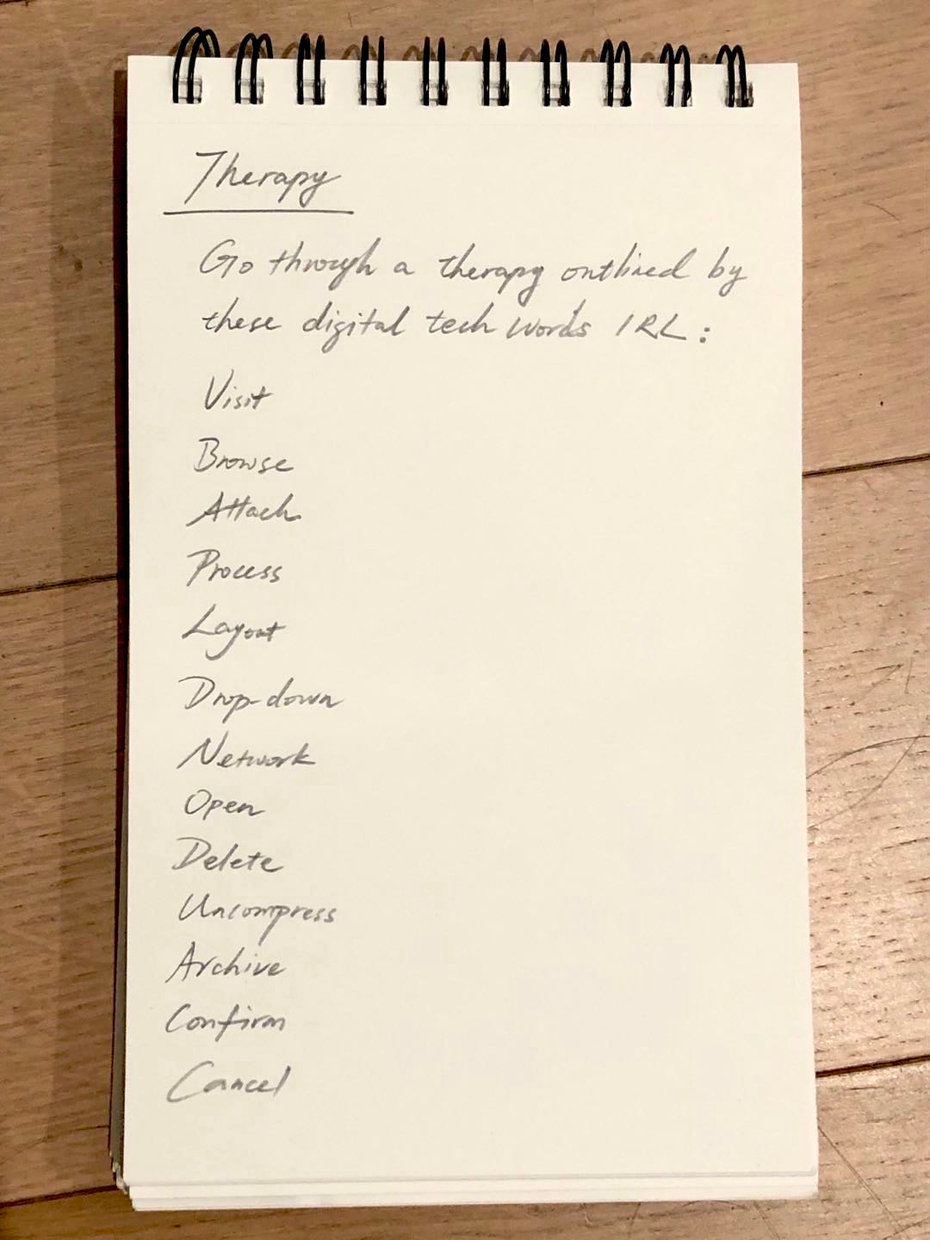 Therapy
Go through a therapy outlined by
these digital tech words IRL:
Visit
Browse
Attach
Process
Layout
Drop-down
Network
Open
Delete
Uncompress
Archive
Confirm
Cancel